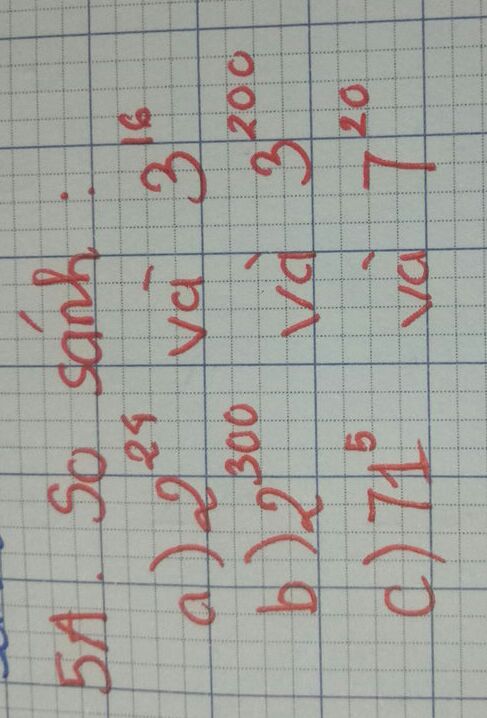 5A. So sánh :
a) 2²⁴ và 3¹⁶
b) 2³⁰⁰ và 3²⁰⁰
c) 71⁵ và 7²⁰